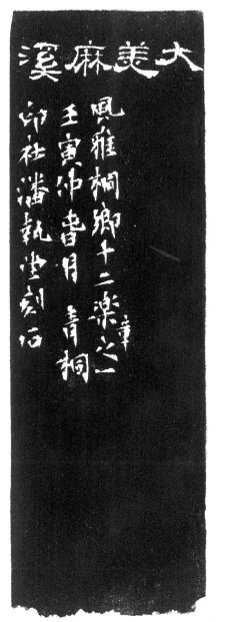 大美麻溪
風雅桐鄉十二樂章之一
壬寅仲春月 青桐
印社潘執堂刻石